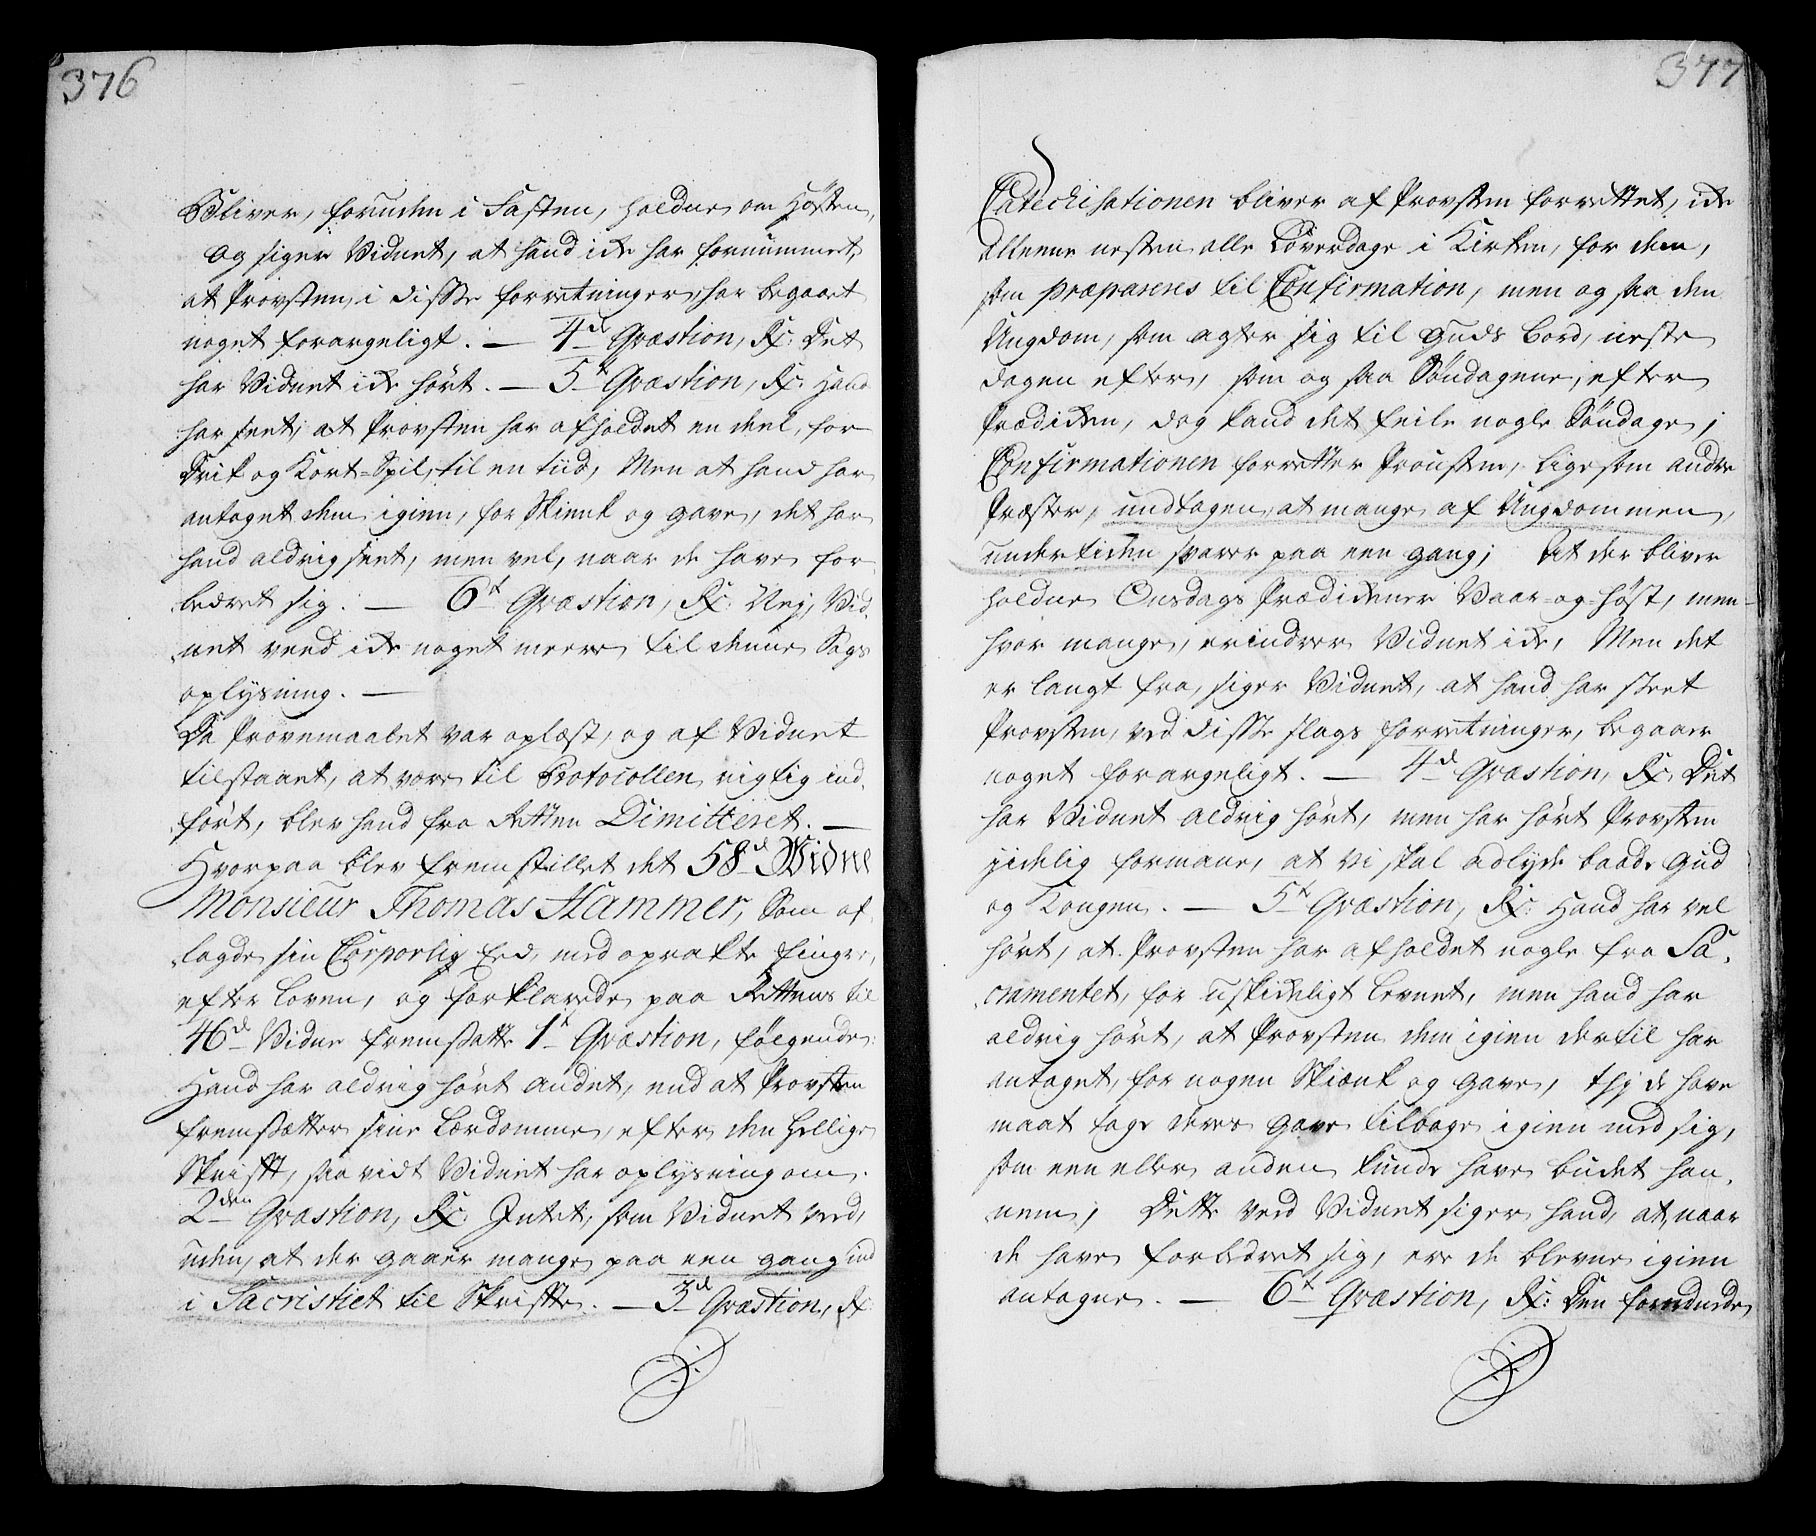 376
Bliver, foruden i Fasten, holdne om Høsten,
og siger Vidnet, at hand icke har fornummet,
at Provsten, i disse forretninger, har begaaet
noget forargeligt. — 4d Qvæstion, Rx: Det
har Vidnet icke hört. — 5t Qvæstion, Rx: Hand
har seet, at Provsten har afholdet en deel, for
Drik og Kort-Spil, til en tiid, Men at hand har
antaget dem igien, for Skienk og gave, det har
hand aldrig seet, men vel, naar de have for-
bedret sig. — 6t Qvæstion, Rx: Nej, Vid-
net veed icke noget meere til denne Sags
oplysning. —
Da Provemaalet var oplæst, og af Vidnet
tilstaaet, at være til Protocollen rigtig ind-
fört, blev hand fra Retten Dimitteret. —
Hvorpaa blev fremstillet det 58d Vidne
Monsieur Thomas Hammer, Som af-
lagde sin Corporlig Eed, med oprakte finger,
efter Loven, og forklarede paa Rettens til
46d Vidne fremsatte 1t Qvæstion, følgende:
Hand har aldrig hört andet, end at Provsten
fremsætter sine Lærdomme, efter den Hellige
Skrifft, saa vidt Vidnet har oplysning om.
2den Qvæstion, Rx: Intet, som Vidnet veed,
uden, at der gaaer mange paa een gang ind
i Sacristiet til Skriffte. — 3d Qvæstion, Rx:
377
Catechisationen bliver af Provsten forrettet, icke
alleene nesten alle Löverdage i Kirken, for dem,
som præpareres til Confirmation, men og saa den
Ungdom, som agter sig til Guds Bord, neste
dagen efter, som og saa Söndagene, efter
Prædicken, dog kand det feile nogle Söndage;
Confirmationen forretter Provsten, ligesom andre
Præster, undtagen, at mange af Ungdommen,
undertiden svarer paa een gang; At der bliver
holdne Onsdags Prædickener Vaar-og-Höst, men-
hvor mange, erindrer Vidnet icke, Men det
er langt fra, siger Vidnet, at hand har seet
Provsten, ved disse slags forretninger, begaae
noget forargeligt. — 4d Qvæstion, Rx: Det
har Vidnet aldrig hört, men har hört Provsten
jidelig formane, at vi skal adlyde baade Gud
og Kongen. — 5t Qvæstion, Rx: Hand har vel
hört, at Provsten har afholdet nogle fra Sa-
cramentet, for uskickeligt Levnet, men hand har
aldrig hört, at Provsten dem igien dertil har
antaget, for nogen Skiænk og Gave, thj de have
maat tage deres Gave tilbage igien med sig,
som een eller anden kunde have budet han-
nem; Dette veed Vidnet siger hand, at naar
de have forbedret sig, ere de blevne igien
antagne. — 6t Qvæstion, Rx: Den formodende